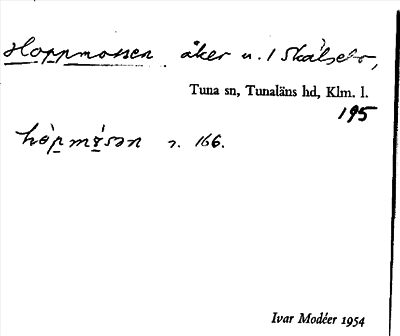 Hoppmossen åker u. 1 Skälsebo,
Tuna sn, Tunaläns hd, Klm. l.
195
s. 166.
Ivar Modéer 1954